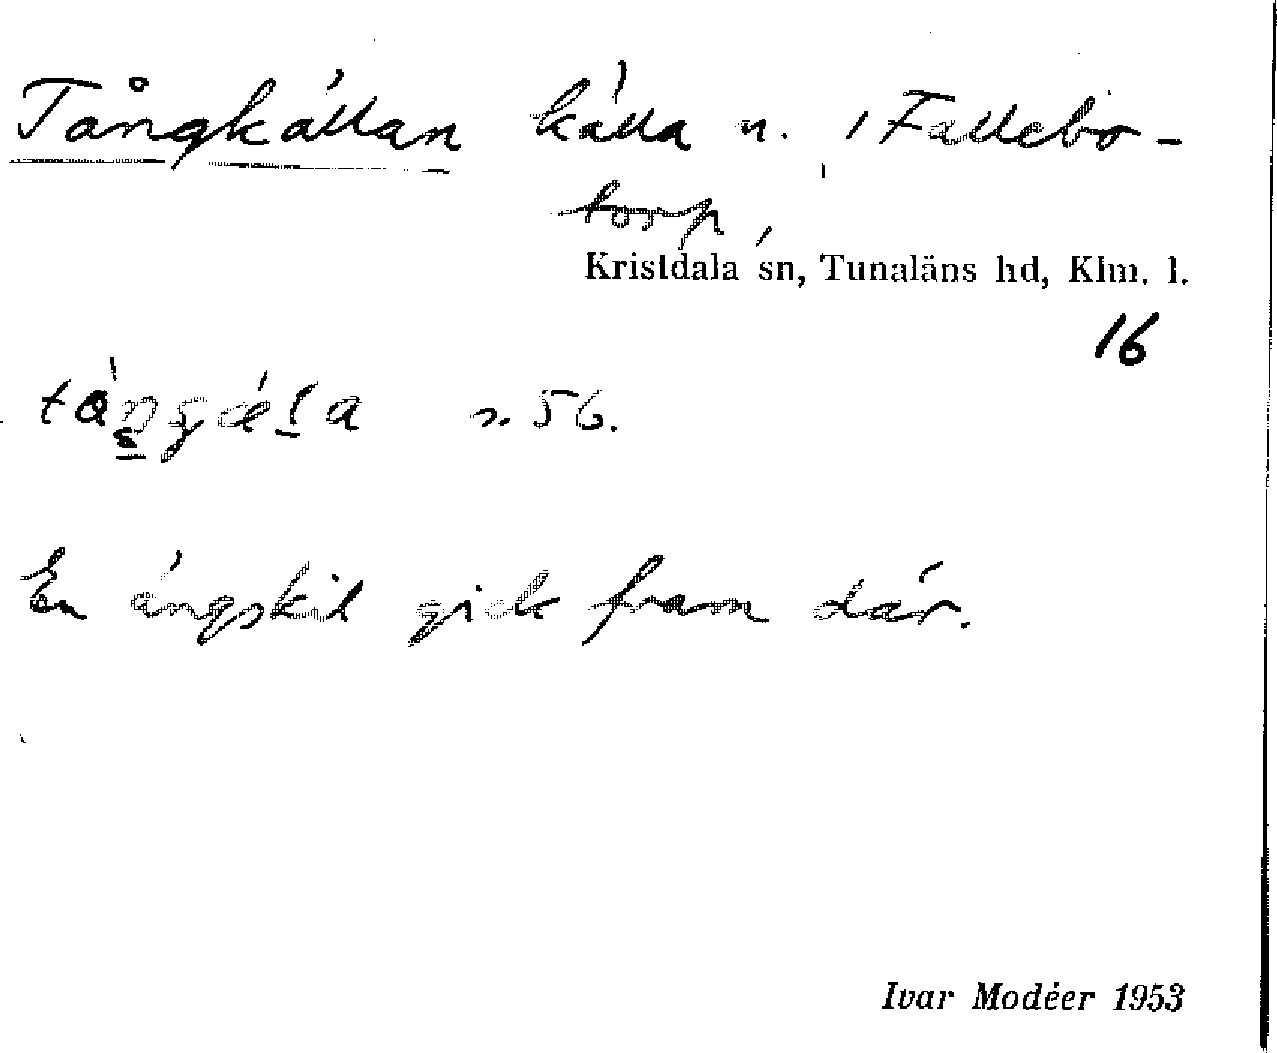 Tångkällan källa n. i Fallebo-
torp,
Kristdala sn, Tunaläns hd, Klm. l.
16
n. 56.
En ängskil gick fram där.
Ivar Modéer 1953